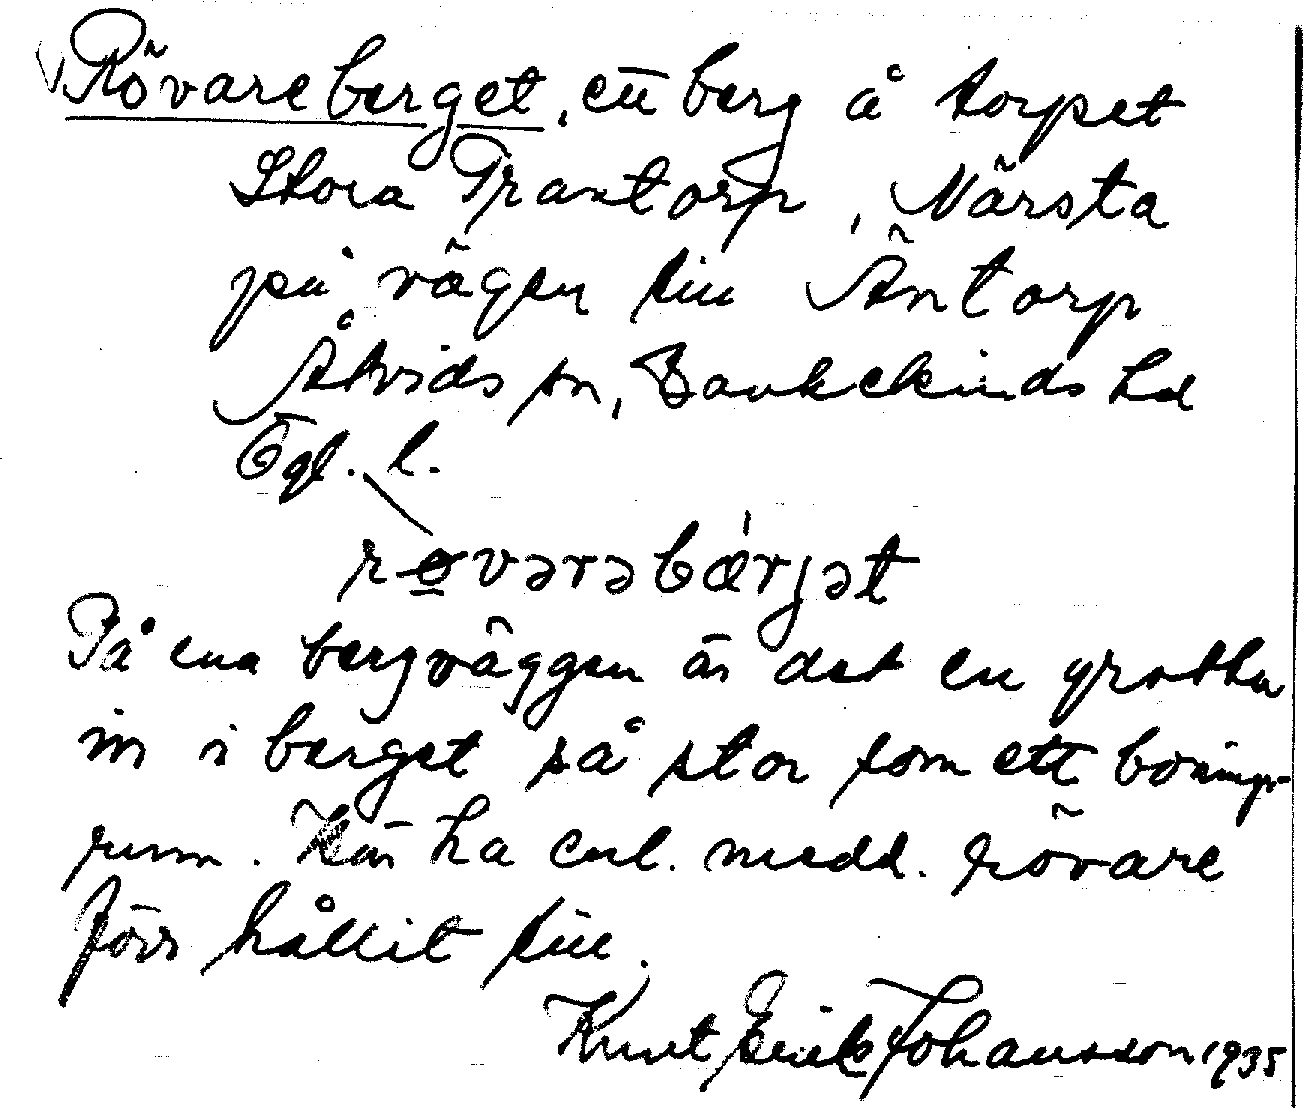 Rövareberget, ett berg å torpet
Stora Trantorp, Närsta
på vägen till Äntorp
Åtvids sn, Bankekinds hd
Ögl. l.
røvərəbǽrjət
På ena bergväggen är det en grotta
in i berget så stor som ett bonings-
rum. Här ha enl. medd. rövare
förr hållit till.
Kurt Erik Johansson 1935